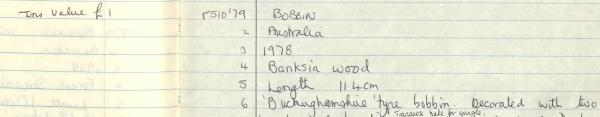 Ins value £1 F510'79 BOBBIN
2 Australia
3 1978
4 Banksia wood
5 Length 11.4cm
6 'Buckinghamshire' type bobbin. Decorated with two
Transverse hole for spangle.